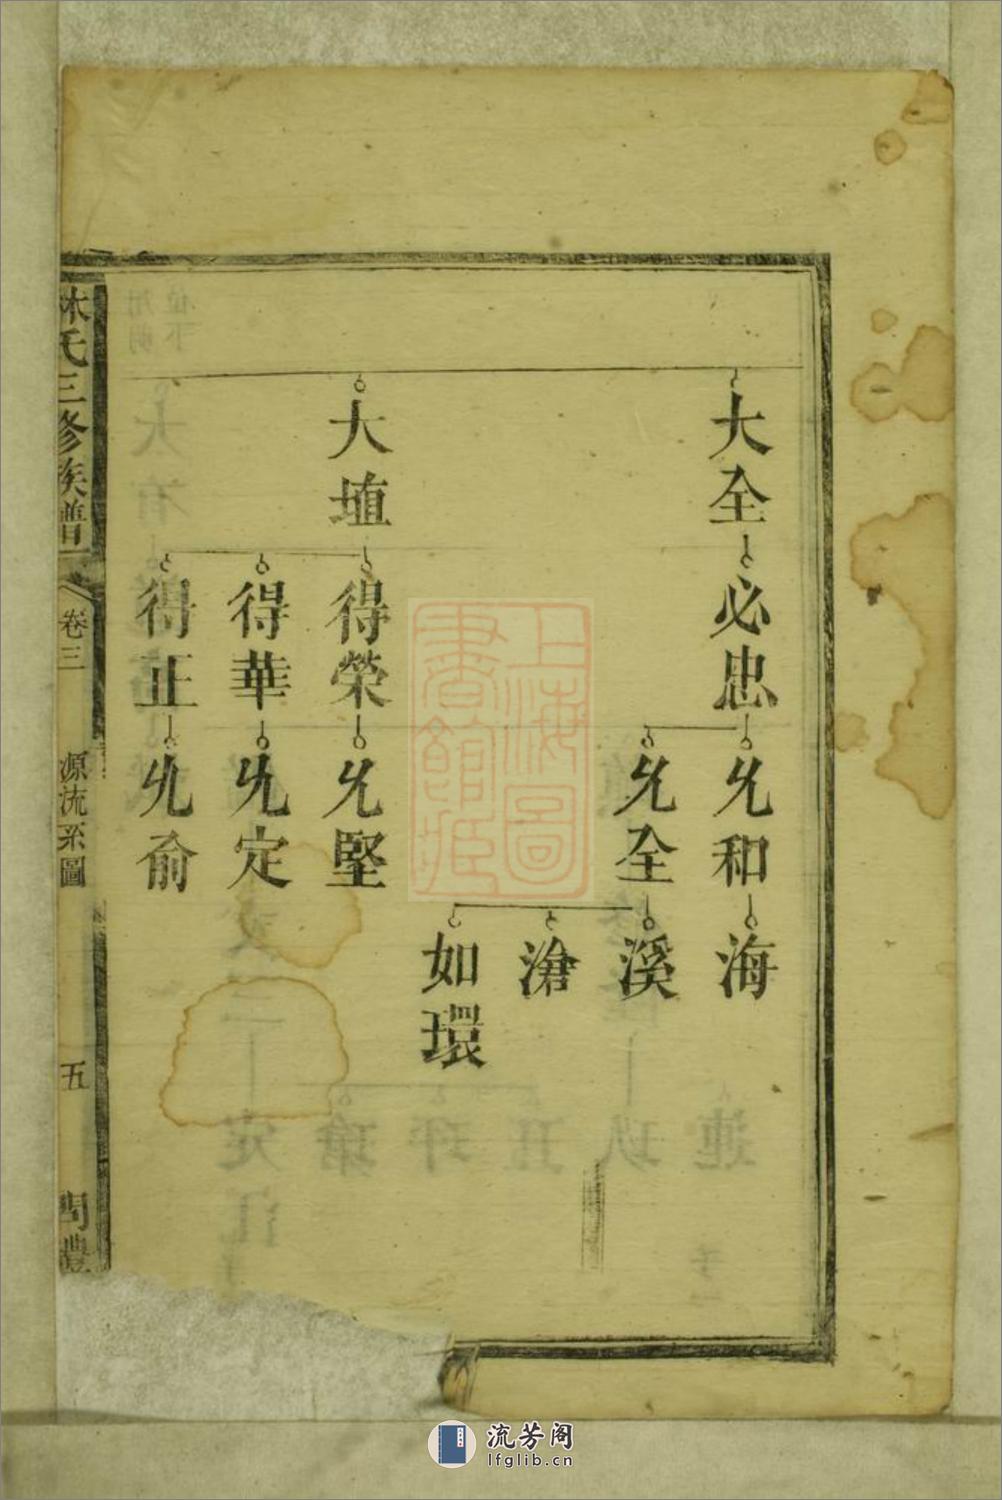 大全 必忠 允和 海
允全 溪
滄
如環
大埴 得榮 允堅
得華 允定
得正 允俞
林氏三修族譜 卷三 源流系圖 五
上海圖
書館藏
流芳阁
lfglib.cn